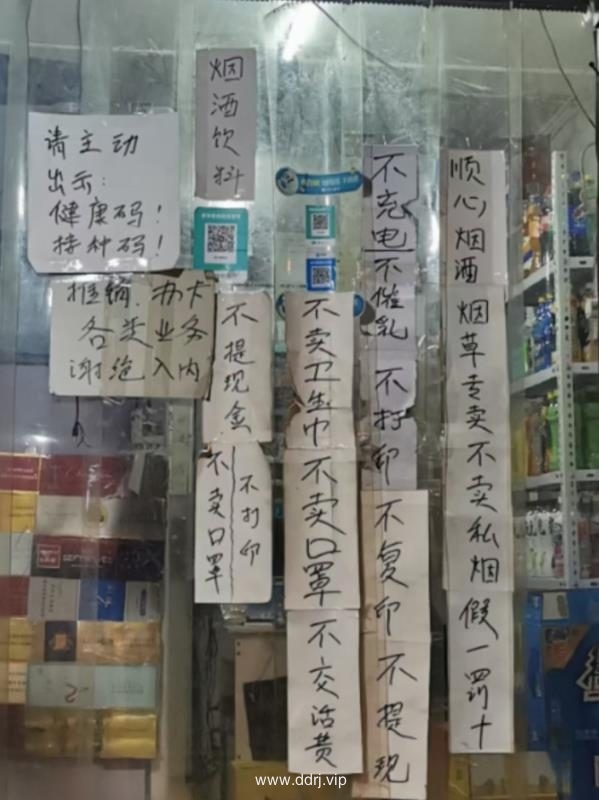 请主动
出示:
健康码!
接种码!
推销、办卡
各类业务
谢绝入内
烟酒饮料
不提现金
不卖口罩
不打印
不卖卫生巾
不卖口罩
不交话费
不充电
不催乳
不打印
不复印
不提现
顺心烟酒
烟草专卖
不卖私烟
假一罚十
www.ddrj.vip